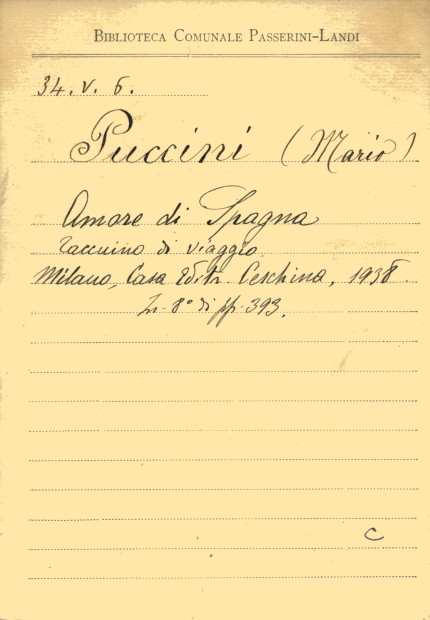 Biblioteca Comunale Passerini-Landi
34. V. 6.
Puccini (Mario)
Amore di Spagna
taccuino di viaggio
Milano, Casa Edit. Ceschina, 1938
In-8° di pp. 393.
C